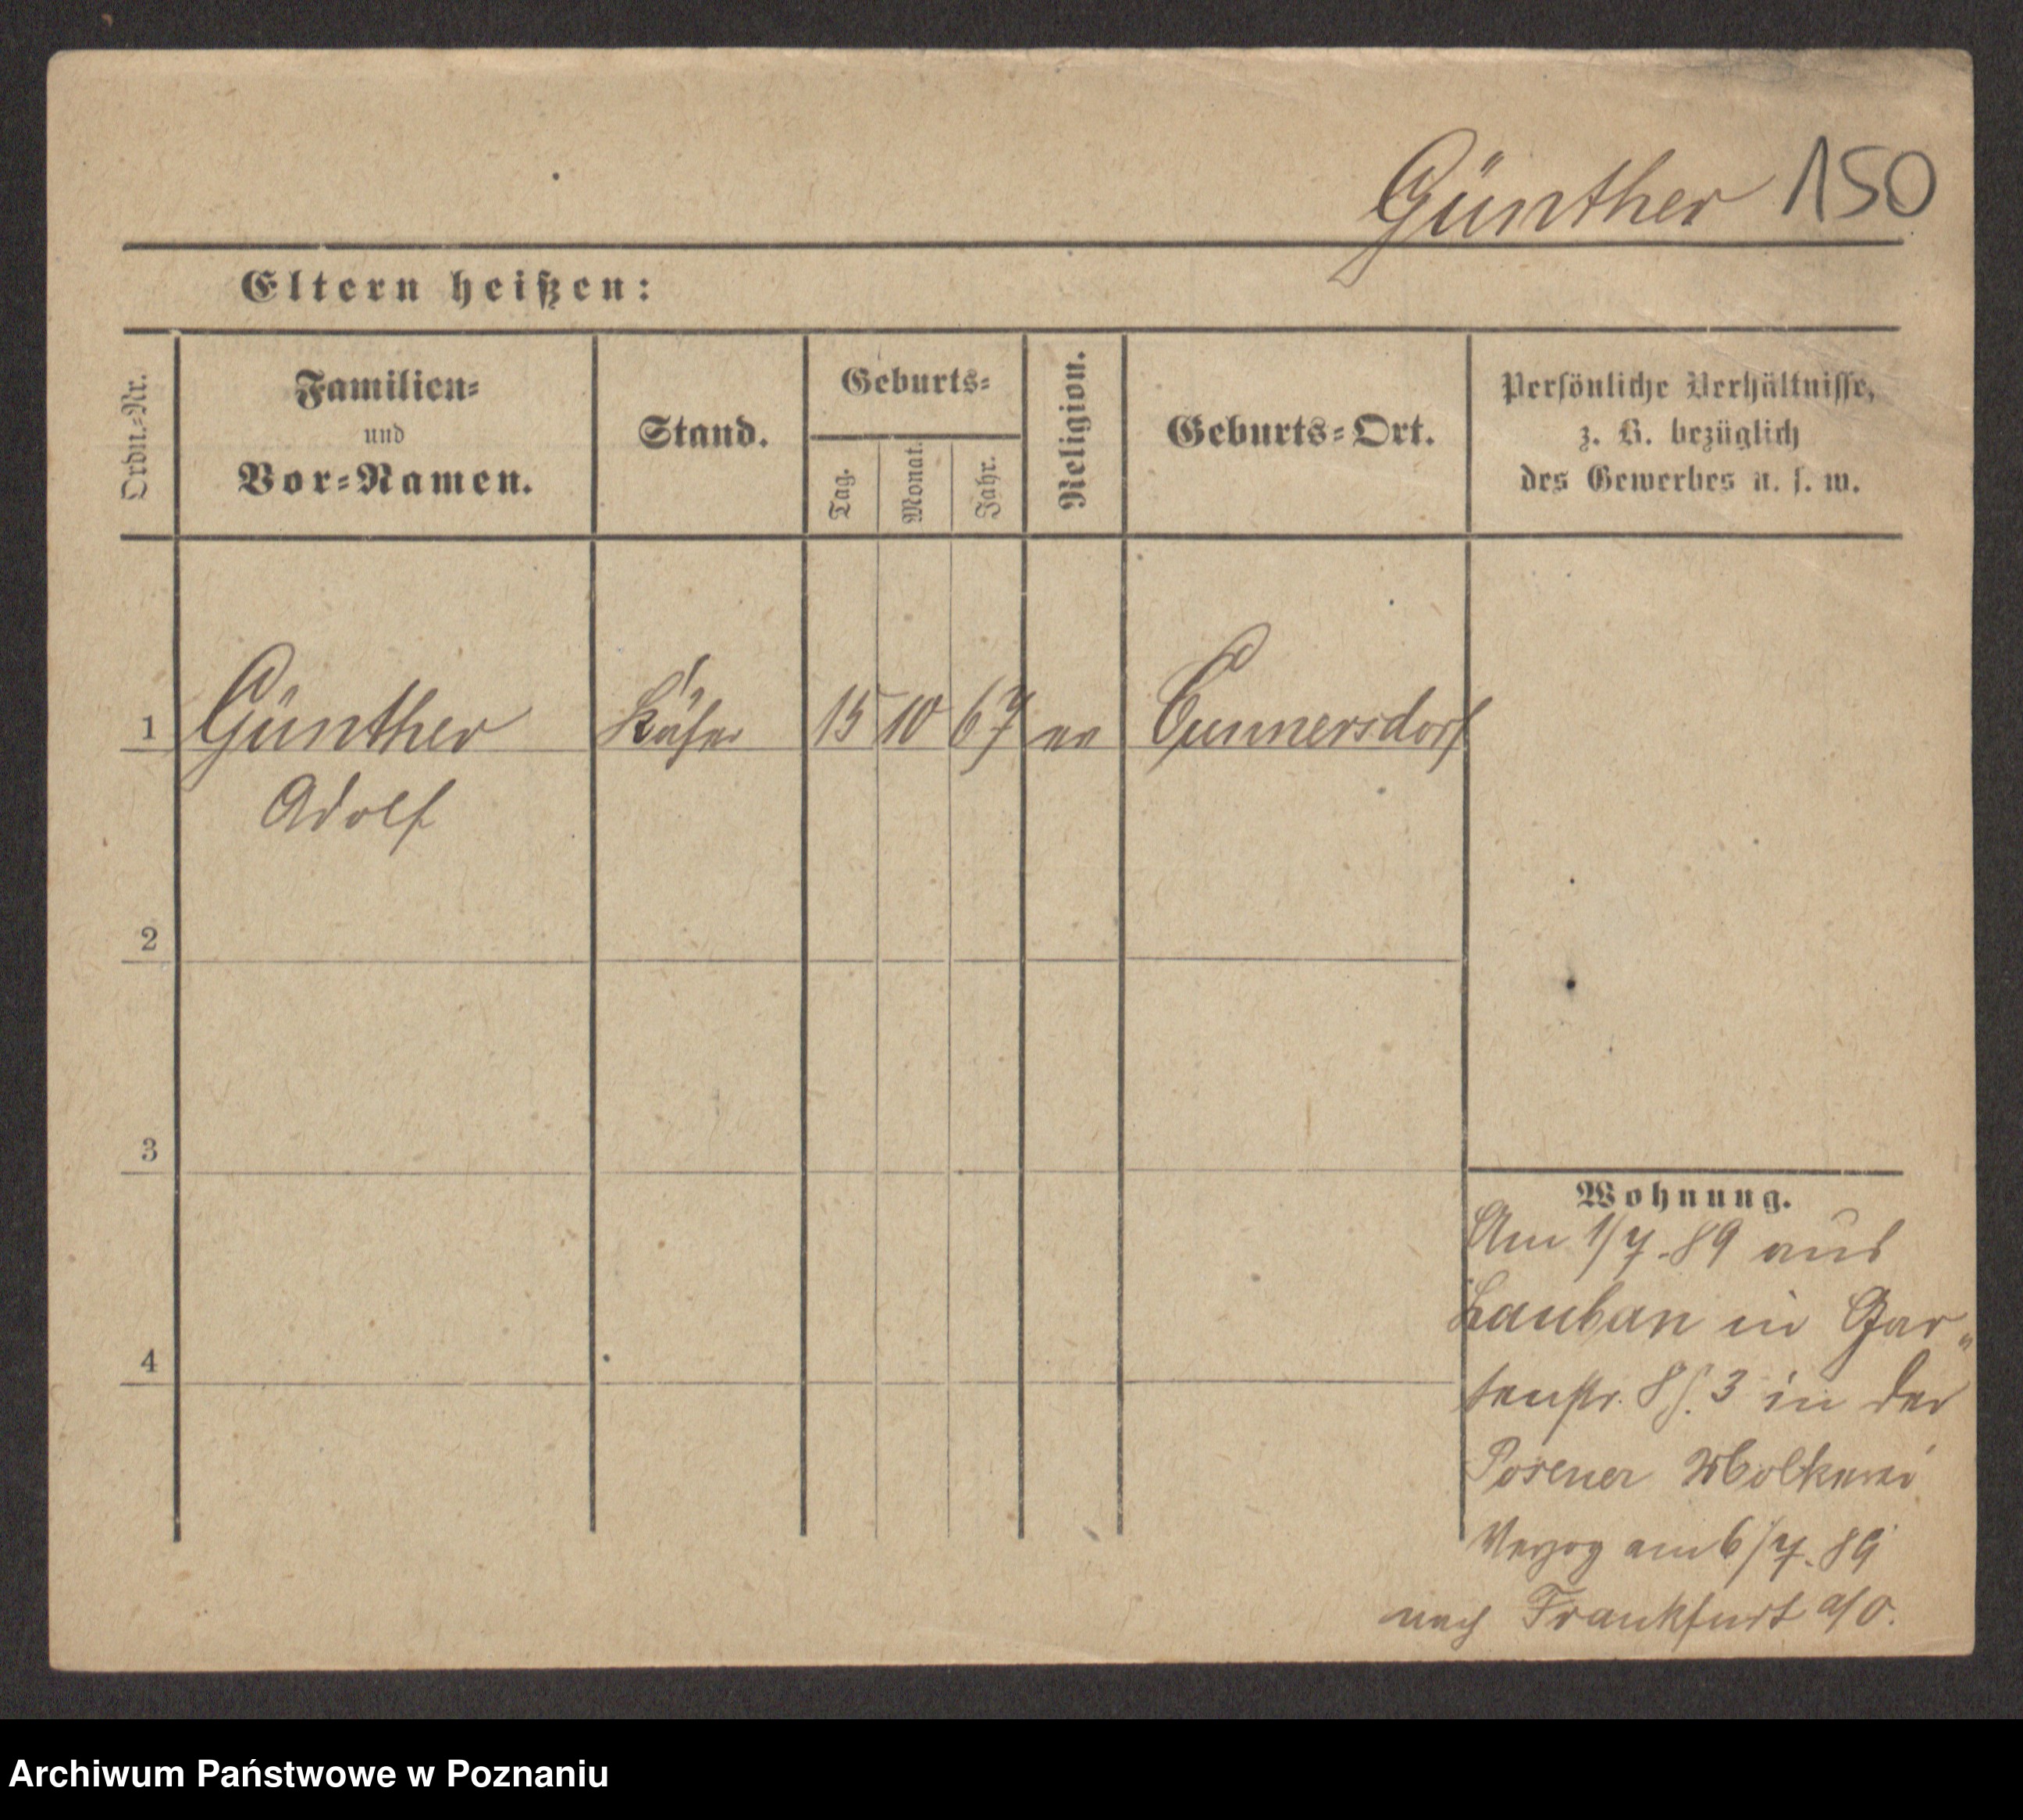 Günther 150
Eltern heißen:
Ordn.-Nr.
Familien-
und
Vor-Namen.
Stand.
Geburts-
Tag.
Monat.
Jahr.
Religion.
Geburts-Ort.
Persönliche Verhältnisse,
z. B. bezüglich
des Gewerbes u. s. w.
1 Günther 15 10 67 Cunnersdorf
Adolf
2
3
4
Wohnung.
Am 1/7.89 aus
Lauban in Gar„
tenstr. 3 in der
Posener Molkerei
Verzog am 6/7.89
nach Frankfurt a/O.
Archiwum Państwowe w Poznaniu